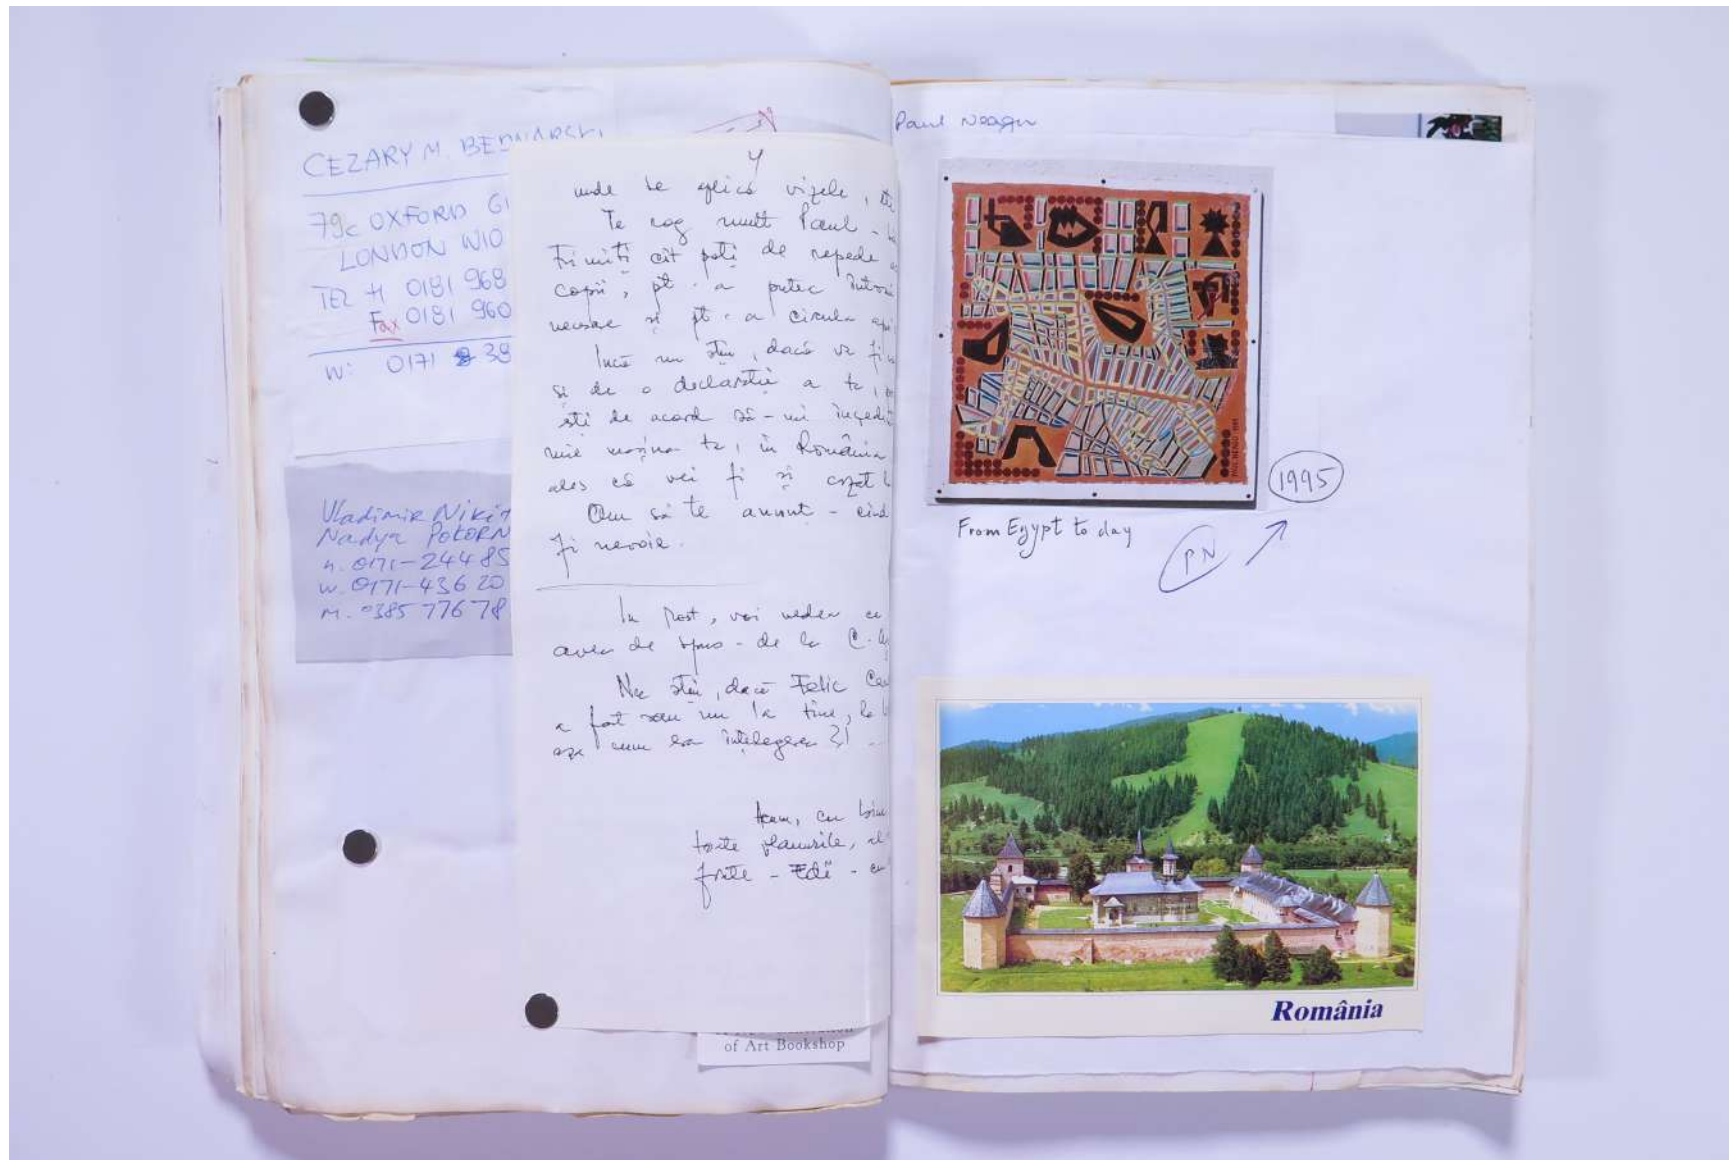 CEZARY M. BEDNARSKI
79c OXFORD G
LONDON W10
TEL H 0181 968
Fax 0181 960
W: 0171 38
Vladimir Nikit
Nadya POKORN
h. 0171-244 85
w. 0171-436 20
m. 0385 776 78
unde se aplică vizele,
Te rog mult Paul -
Trimiți cît poți de repede
copii, pt. a putea
necesare și pt. a circula
Încă nu știu, dacă va fi
și de o declarație a ta,
ești de acord să-mi
mie mașina ta, în România
ales că vei fi și
Am să te anunț - cînd
fi nevoie.
In rest, voi vedea ce
avem de spus - de la C.
Nu știu, dacă Felic
a fost sau nu la tine, la
așa cum era înțelegerea ?!
Acum, cu
toate planurile,
frate - Edi -
of Art Bookshop
Paul Neagu
1995
From Egypt to day
PN
România